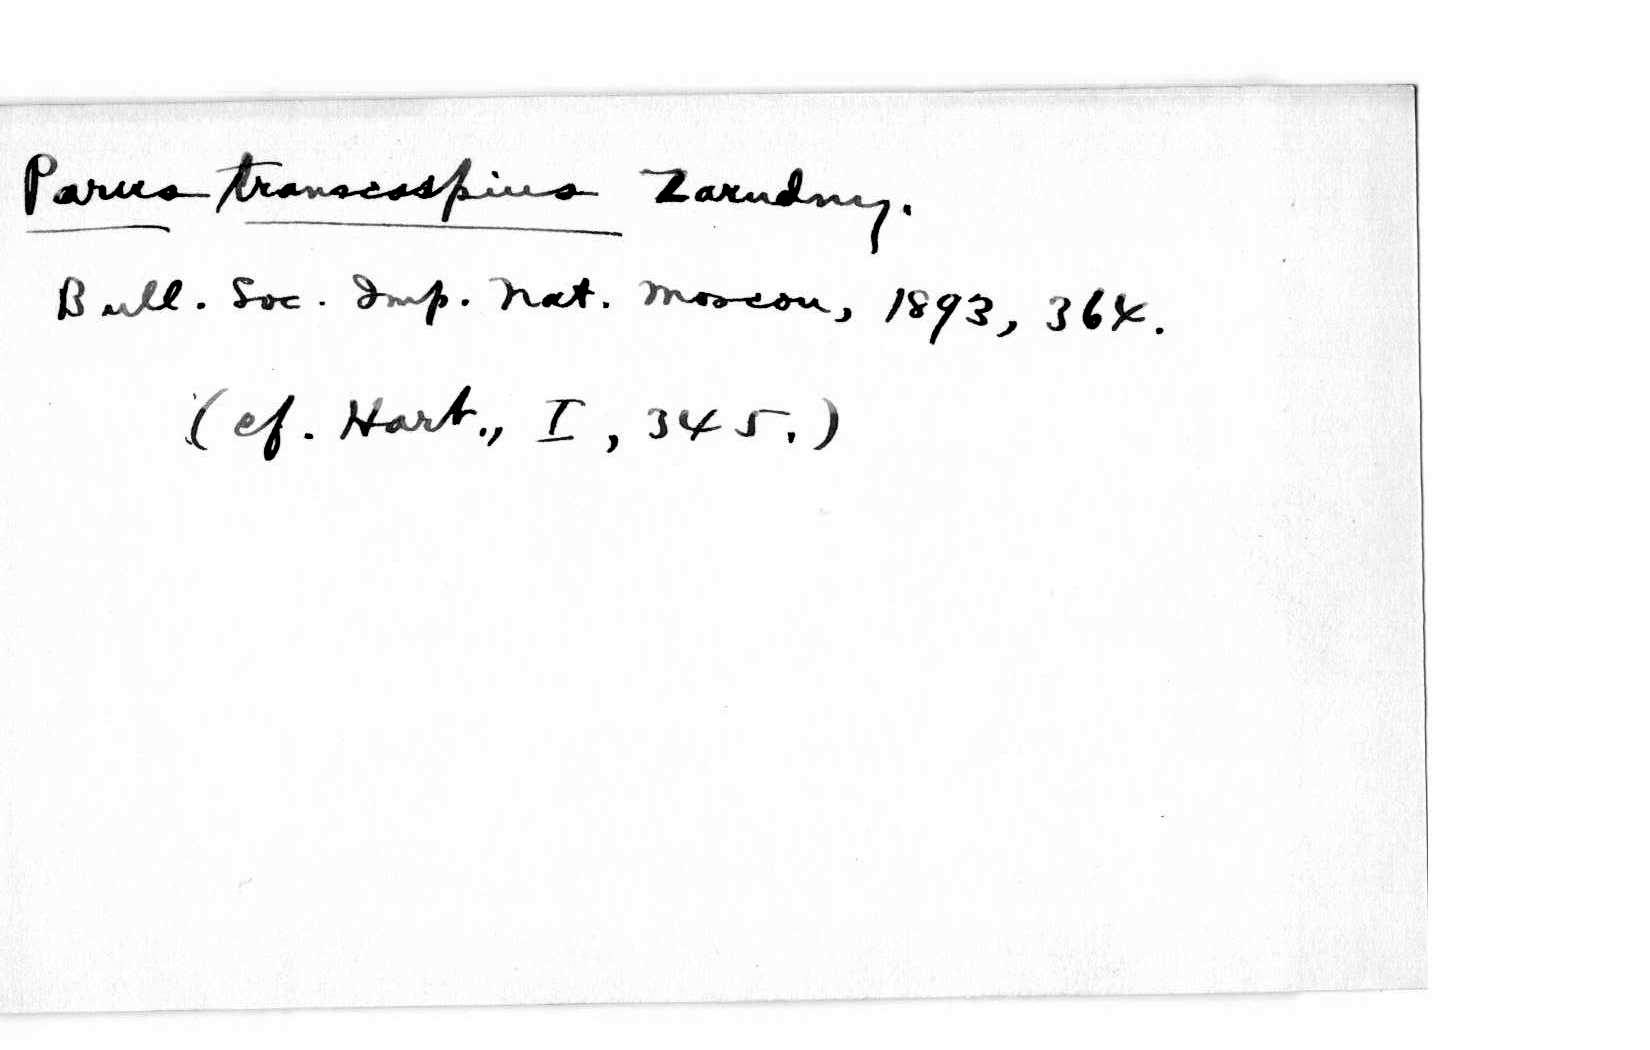 Parus transcaspius Zarudny.
Bull. Soc. Imp. Nat. Moscou, 1893, 364.
(cf. Hart., I, 345.)